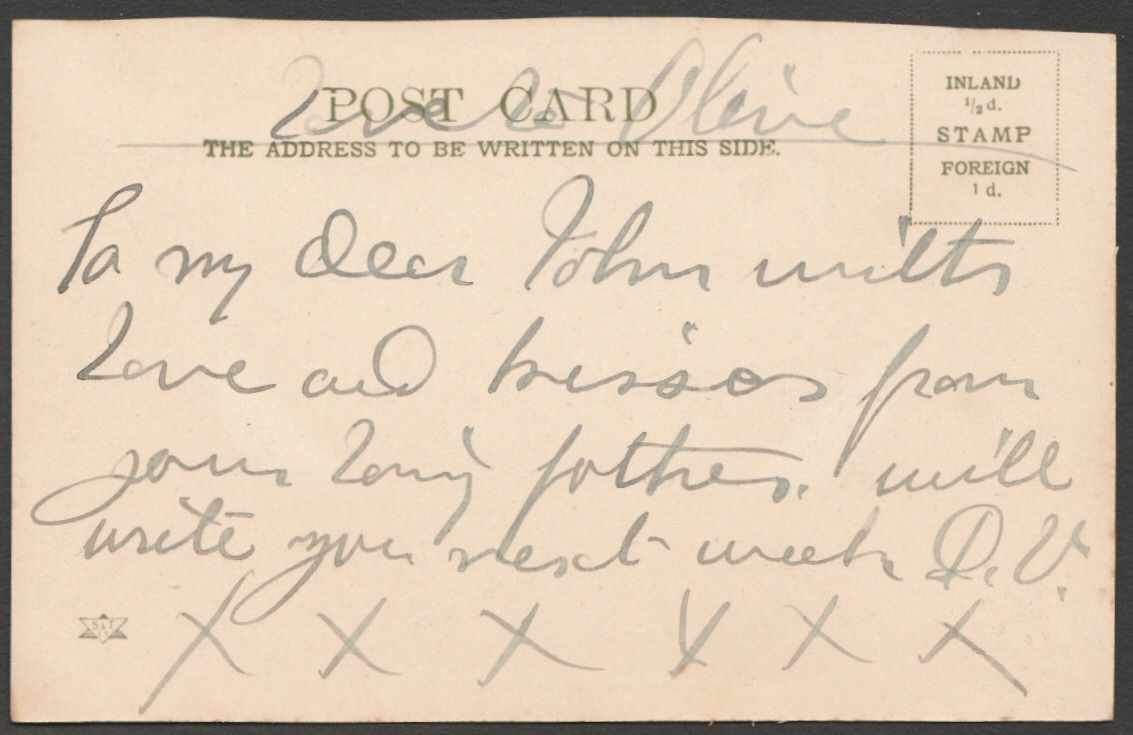 Love to Olive
POST CARD
THE ADDRESS TO BE WRITTEN ON THIS SIDE.
INLAND
½ d.
STAMP
FOREIGN
1 d.
To my dear John with
love and kisses from
your loving father. will
write you next week D.V.
X X X X X X